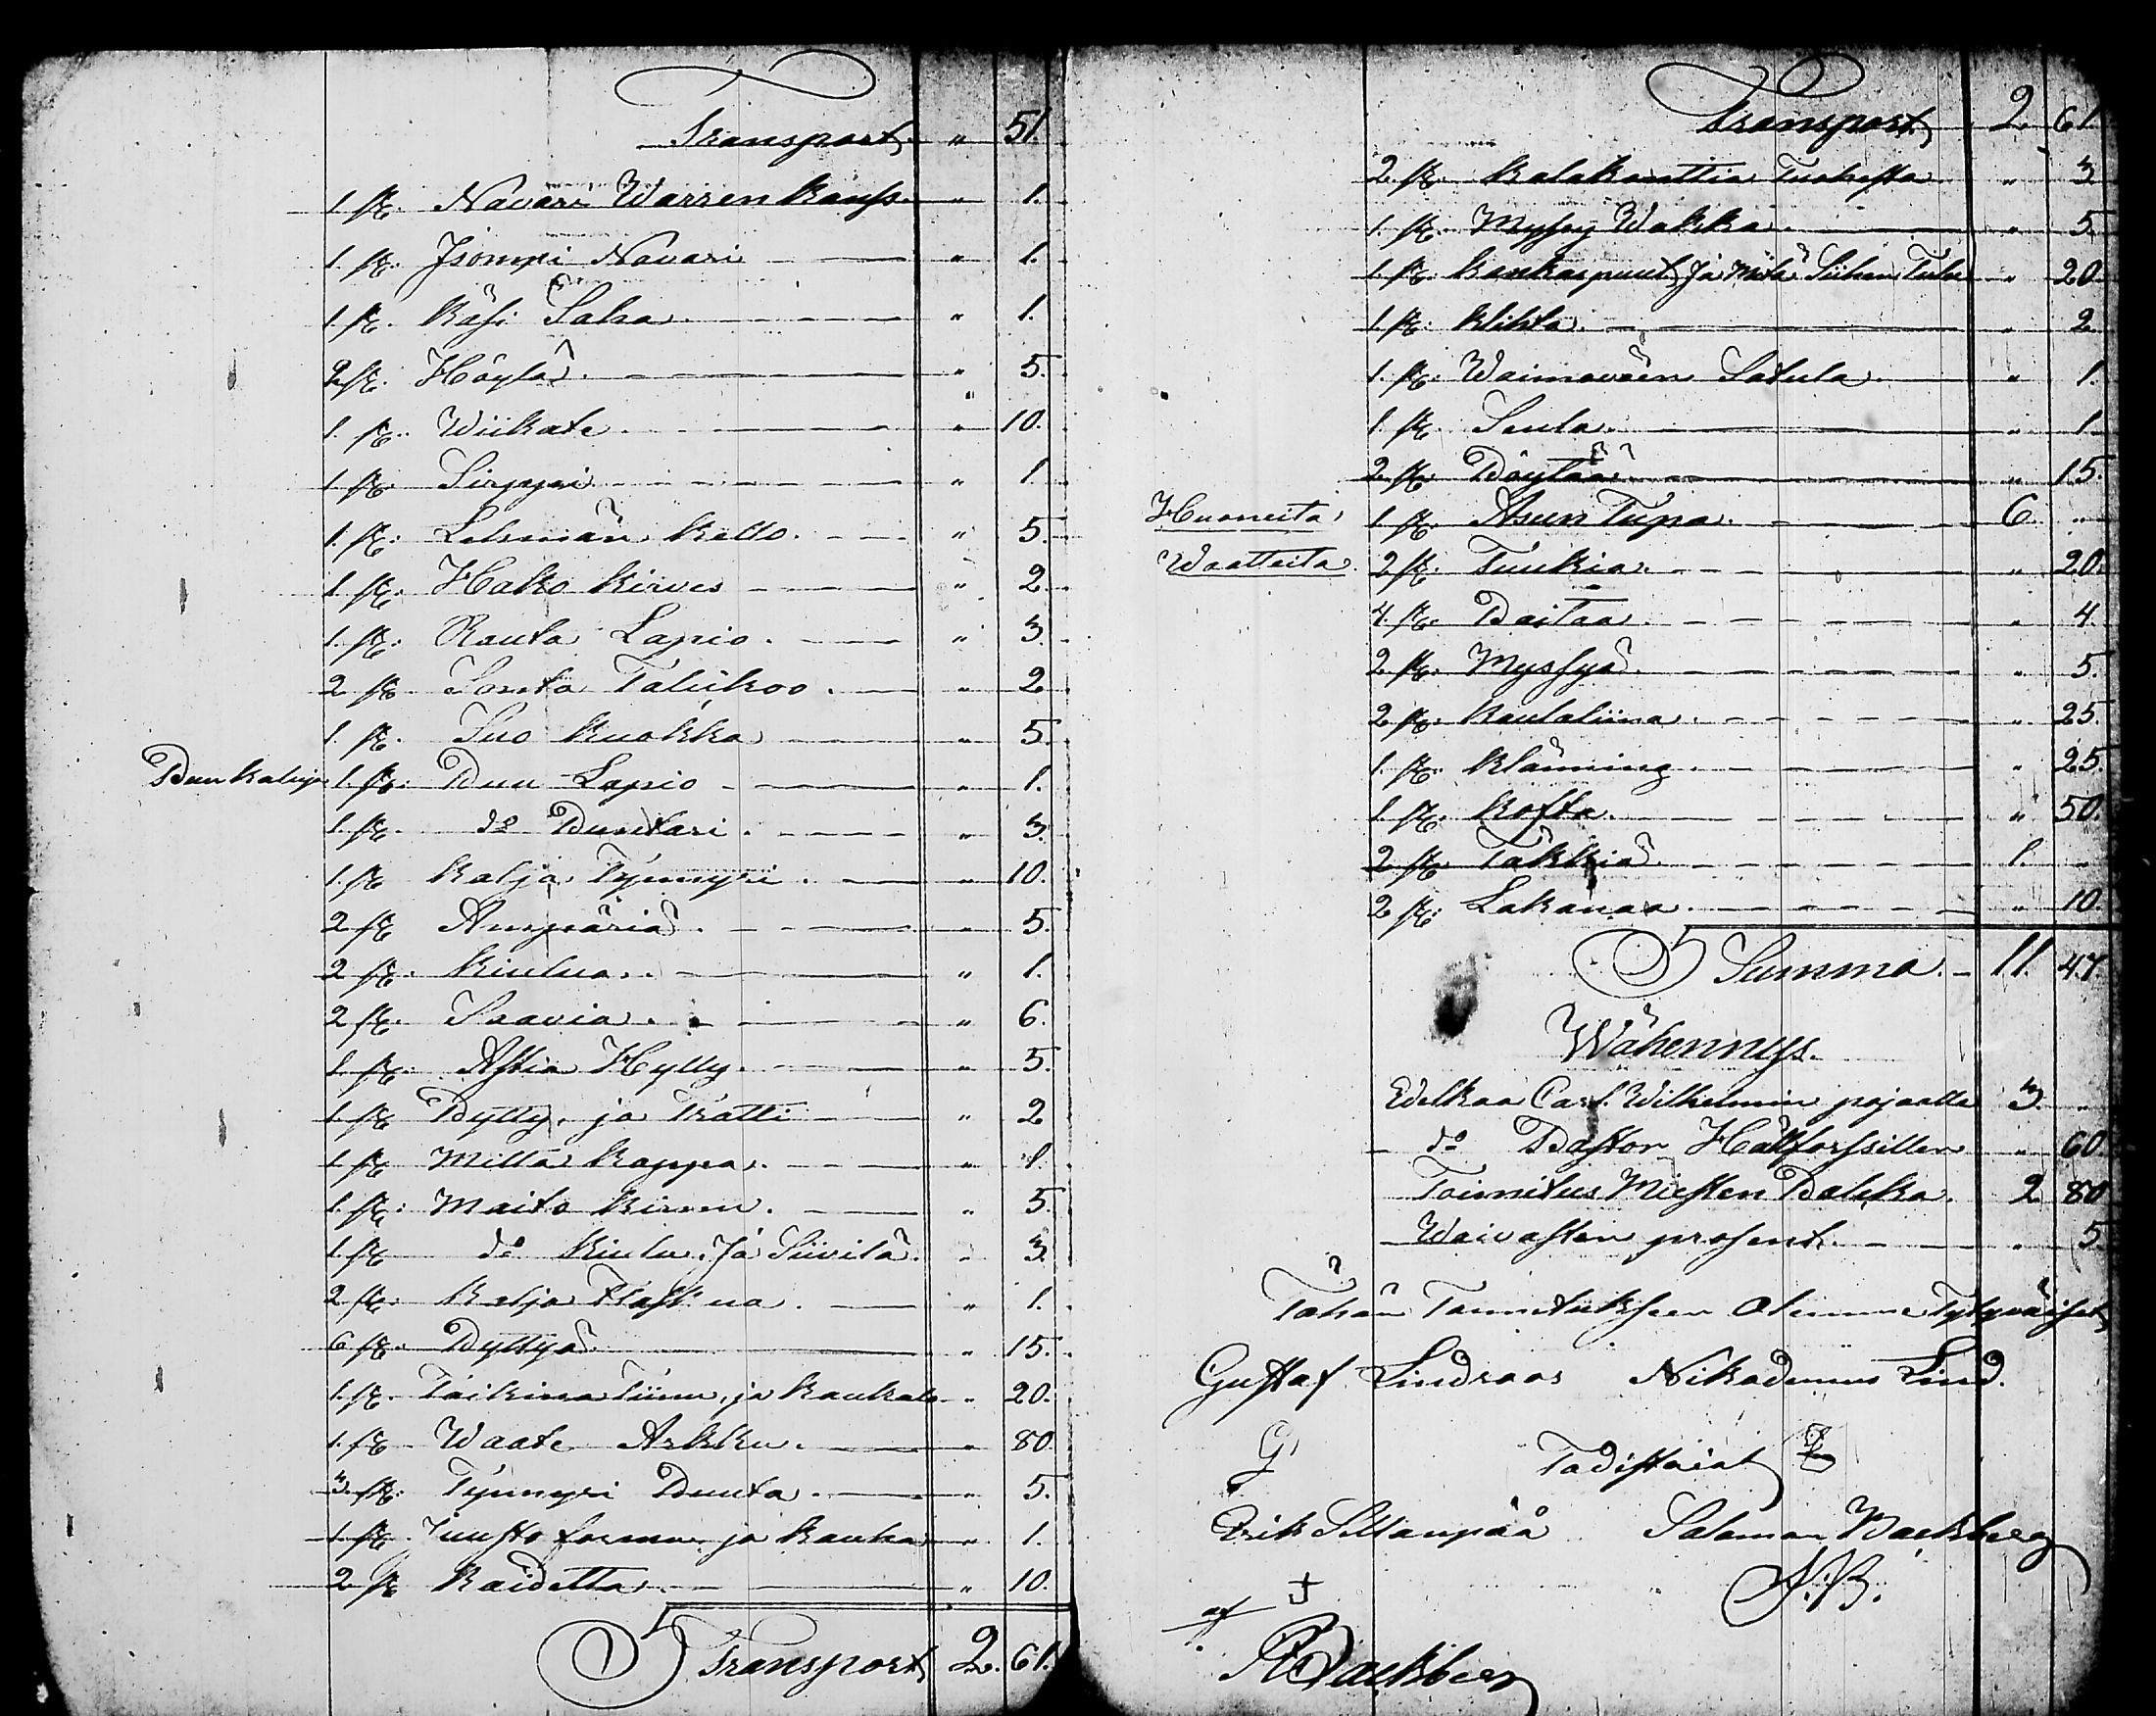 Transport " 51.
1. st. Navari Warren kanss. " 1.
1. st. Isompi Navari " 1.
1. st. Käsi Saha " 1.
2 st. Höylä " 5.
1. st. Wiikate " 10.
1 st. Sirppi " 1
1. st. Lehmän kello " 5.
1. st. Hako kirves " 2
1. st. Rauta Lapio " 3.
2 st. Sonta Talikoo " 2
1. st. Suo kuokka " 5.
Puu kaluja 1. st. Puu Lapio " 1.
1. st. do Puntari " 3.
1. st. kalja Tynnyri " 10.
2 st. Ampäriä " 5.
2 st. kiulua " 1.
2 st. Saavia " 6.
1. st. Astia Hylly " 5.
1 st. Pytty, ja Tratti " 2
1 st. Mitta kappa " 1
1. st. Maito kirnu " 5.
1 st. do kiulu, Ja Siivilä " 3.
2 st. kalja Flaskua " 1.
6 st. Pyttyä " 15.
1. st. Taikina Tiinu, ja kaukalo " 20.
1. st. Waate Arkku " 80.
3 st. Tynnyri Puuta " 5.
1 st. Juusto forma, ja kauha " 1.
2 st. kaidetta " 10.
Transport 2. 61.
Transport 2. 61.
2. st. kalakonttia Tuohesta " 3
1. st. Myssy Wakka " 5.
1. st. kankaspuut, Ja Mitä Siihen Tulee " 20
1. st. klihta " 2
1. st. Waimoväen Satula " 1.
1 st. Seula " 1
2 st. Pöytää " 15.
Huoneita 1 st. Asun Tupa 6 "
Waatteita 2 st. Turkia " 20.
4. st. Paitaa " 4
2 st. Myssyä " 5.
2 st. kaulaliina " 25.
1. st. klänning " 25.
1 st. kofta " 50.
2 st. Täkkiä 1. "
2 st. Lakanaa " 10.
Summa 11. 47.
Wähennys.
Edelkaa Carl Wilhelmin pojaalle 3. "
do Pastor Hällforssillen " 60.
Toimitus Miesten Palkka 2 80
Waivasten prosent " 5.
Tähän Toimitukseen Olemme Tytyväiset
Gustaf Lindroos Nikodemus Lind.
G
Todistavat
Erik Sillanpää Salomon Backberg
S.B.
af
Backberg